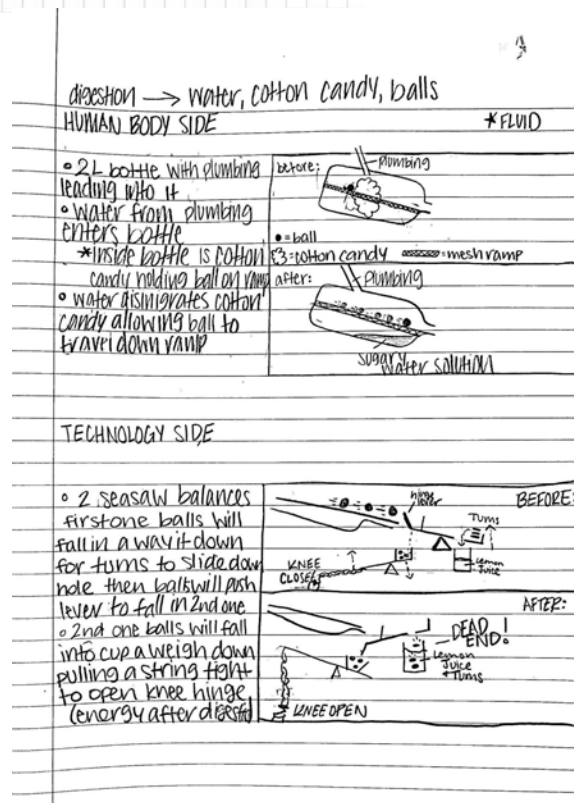 digestion → water, cotton candy, balls
HUMAN BODY SIDE *FLUID
• 2L bottle with plumbing
leading into it
• water from plumbing
enters bottle
*inside bottle is cotton
candy holding ball on ramp
• water disinigrates cotton
candy allowing ball to
travel down ramp
before: plumbing
•=ball
=cotton candy =mesh ramp
after: plumbing
sugary water solution
TECHNOLOGY SIDE
• 2 seasaw balances
first one balls will
fall in a way it down
for tums to slide down
hole then balls will push
lever to fall in 2nd one
• 2nd one balls will fall
into cup a weigh down
pulling a string tight
to open knee hinge
(energy after digest)
BEFORE:
hinge
lever
Tums
lemon
Juice
KNEE
CLOSE
AFTER:
DEAD
END!
Lemon
Juice
+Tums
KNEE OPEN